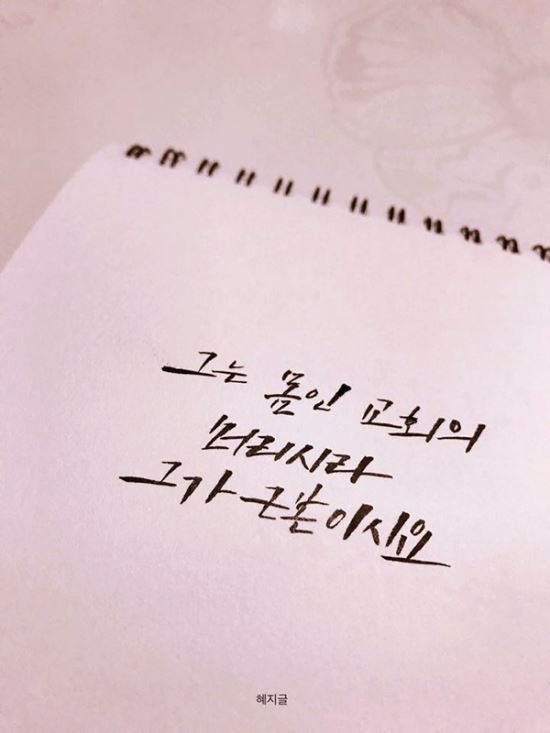 그는 몸인 교회의
머리시라
그가 근본이시요
혜지글